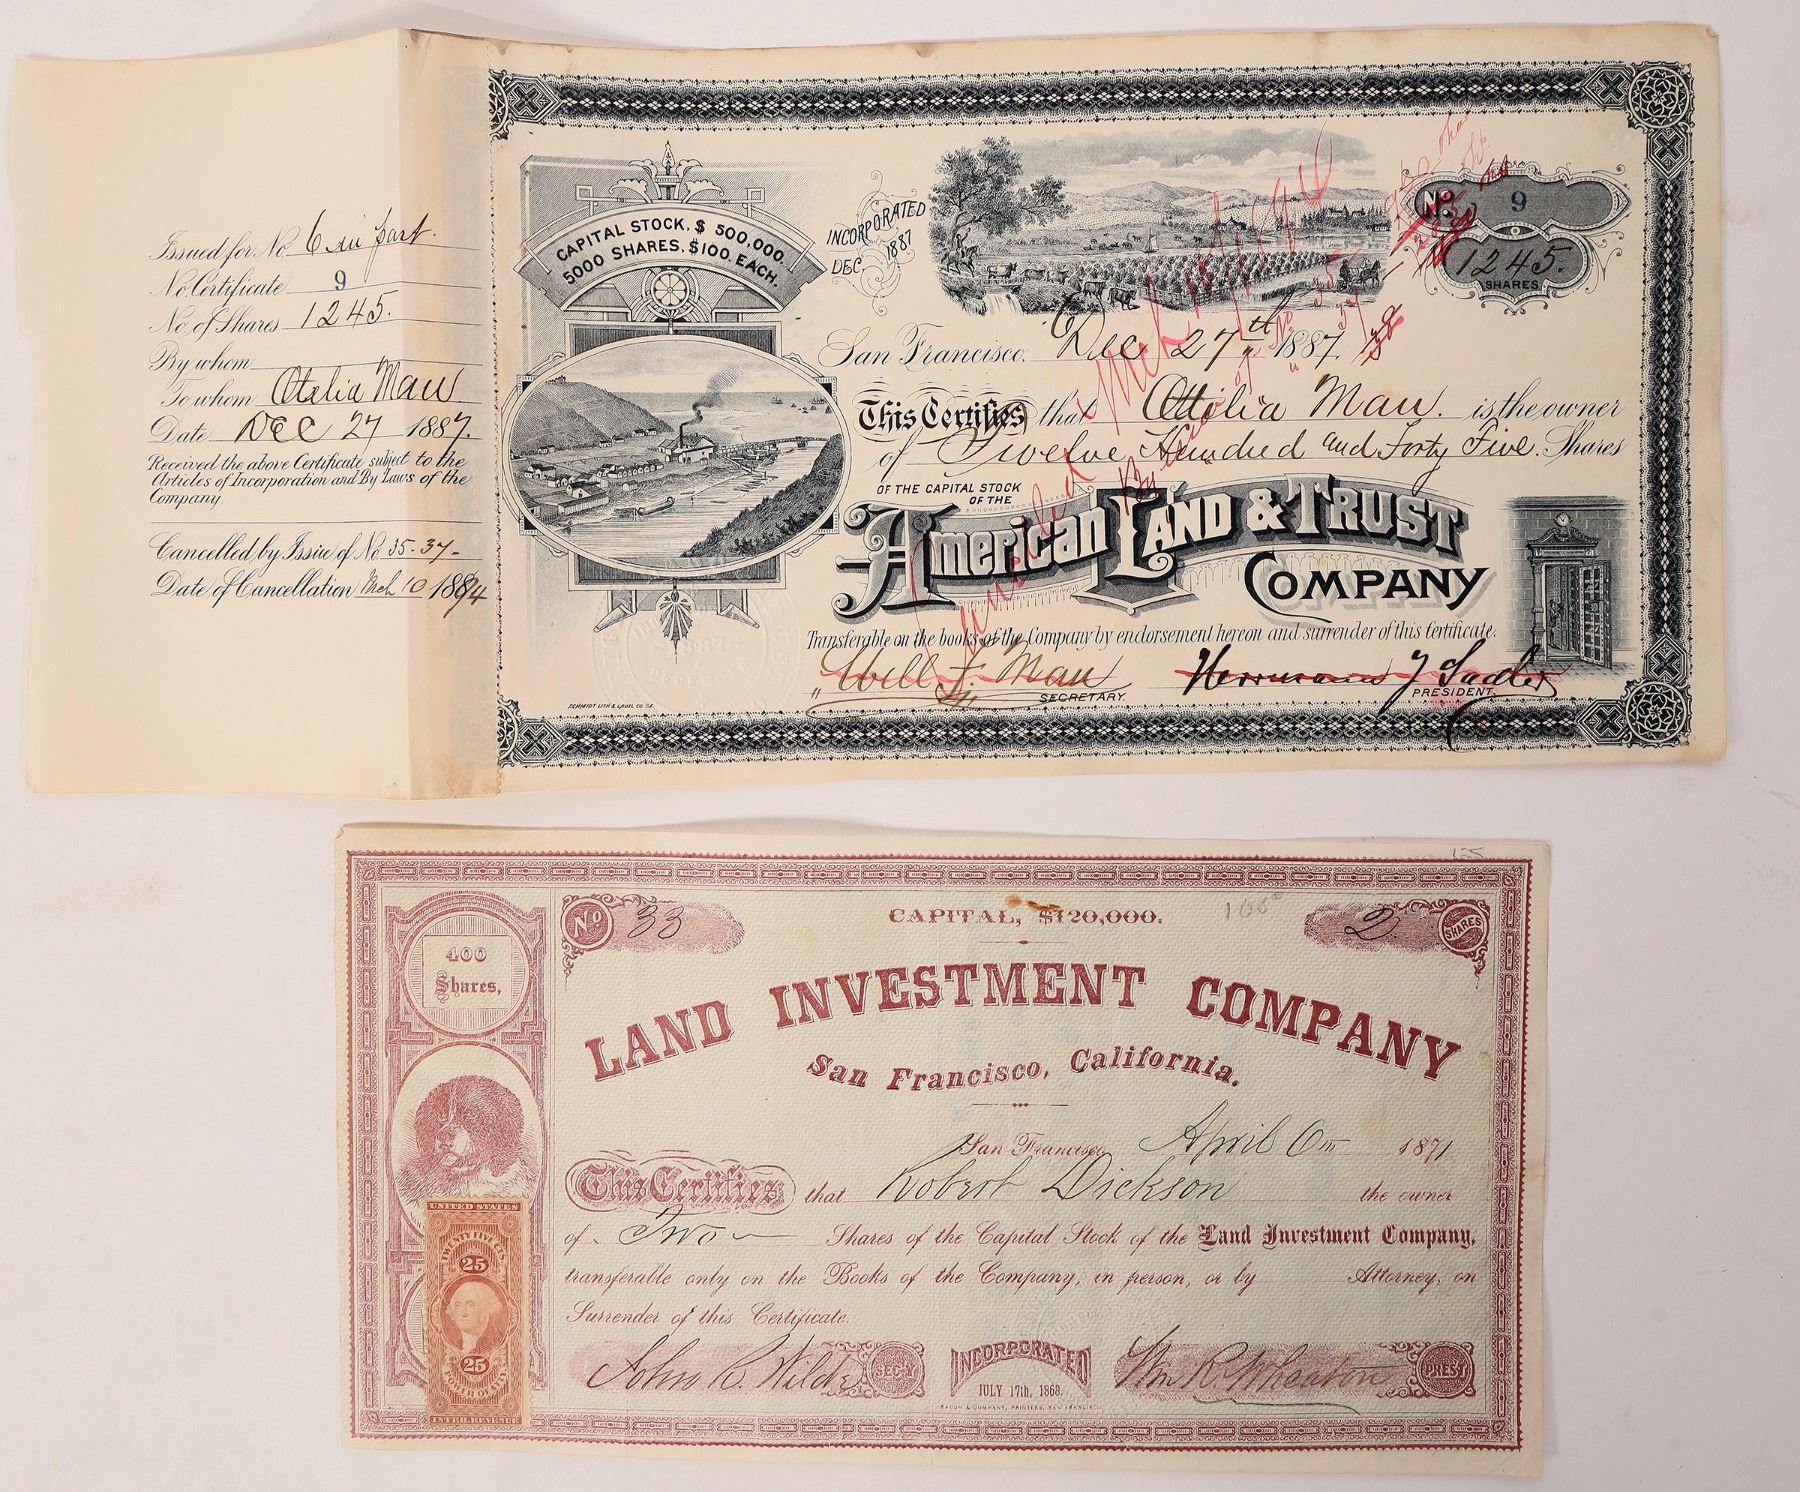 Issued for No. 6 in part.
No. Certificate 9
No. of Shares 1245.
By whom
To whom Otilia Mau
Date Dec 27 1887.
Received the above Certificate subject to the
Articles of Incorporation and By Laws of the
Company
Cancelled by Issue of No. 35-37-
Date of Cancellation Mch 10 1884
CAPITAL STOCK, $ 500,000.
5000 SHARES, $100. EACH.
INCORPORATED
DEC. 1887
No. 9
1245.
SHARES
San Francisco. Dec 27th 1887.
This Certifies that Ottilia Mau. is the owner
of Twelve Hundred and Forty Five. Shares
OF THE CAPITAL STOCK
OF THE
American Land & Trust
Company
Transferable on the books of the Company by endorsement hereon and surrender of this Certificate.
Will F. Mau
SECRETARY.
PRESIDENT.
Cancelled Mch
SCHMIDT LITH & LABEL CO. S.F.
400
Shares,
No 33
CAPITAL, $120,000.
2
SHARES
LAND INVESTMENT COMPANY
San Francisco, California.
San Francisco April 6th 1871
This Certifies that Robert Dickson the owner
of Two Shares of the Capital Stock of the Land Investment Company,
transferable only on the Books of the Company, in person, or by Attorney, on
Surrender of this Certificate.
SEC'Y
INCORPORATED
JULY 17th, 1868.
Wm R. Wheaton
PREST
BACON & COMPANY, PRINTERS, SAN FRANCISCO.
UNITED STATES
TWENTY FIVE CTS
25
25
POWER OF ATTY
INTER. REVENUE